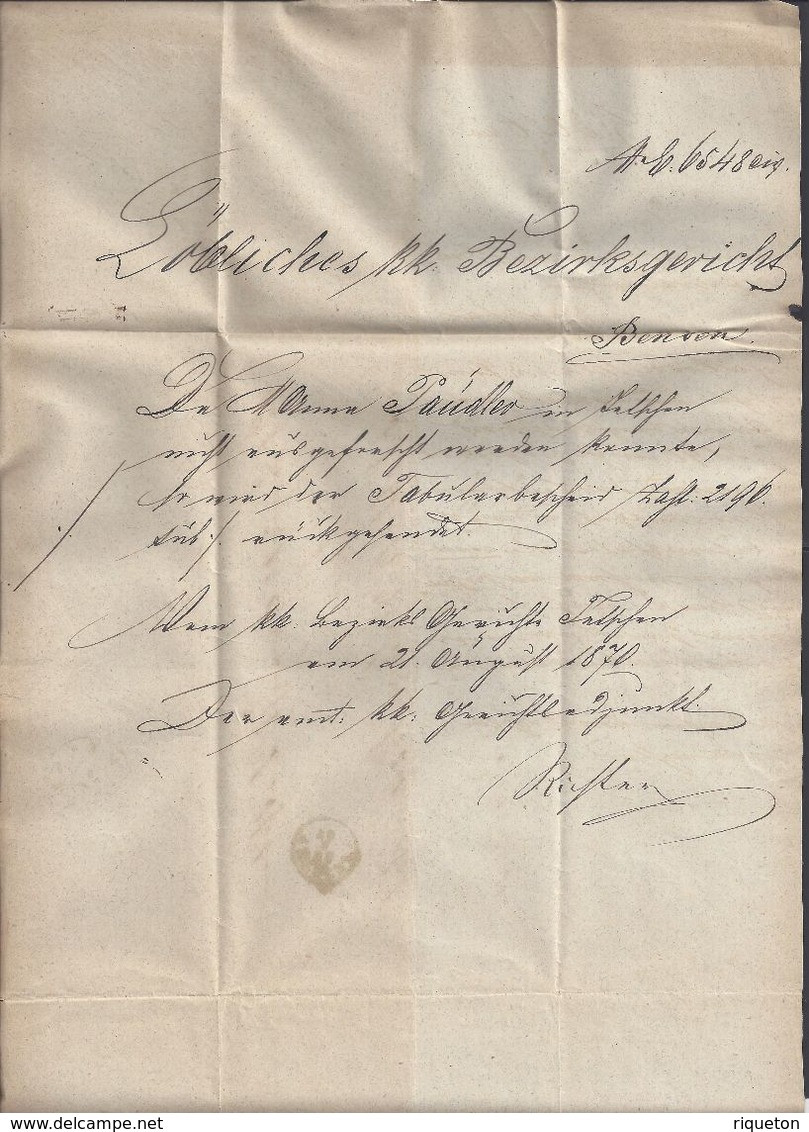 No E. 6548 civ.
Löbliches kk. Bezirksgericht
Bensen.
Da Anna Paudler in Tetschen
nicht ausgeforscht werden konnte,
so wird der Tabularbescheid Zahl: 2196.
tab ./. rückgesendet.
Vom kk. Bezirks Gerichte Tetschen
am 21. August 1870.
Der amt: kk: Gerichtsadjunkt.
Richter
www.delcampe.net
riqueton